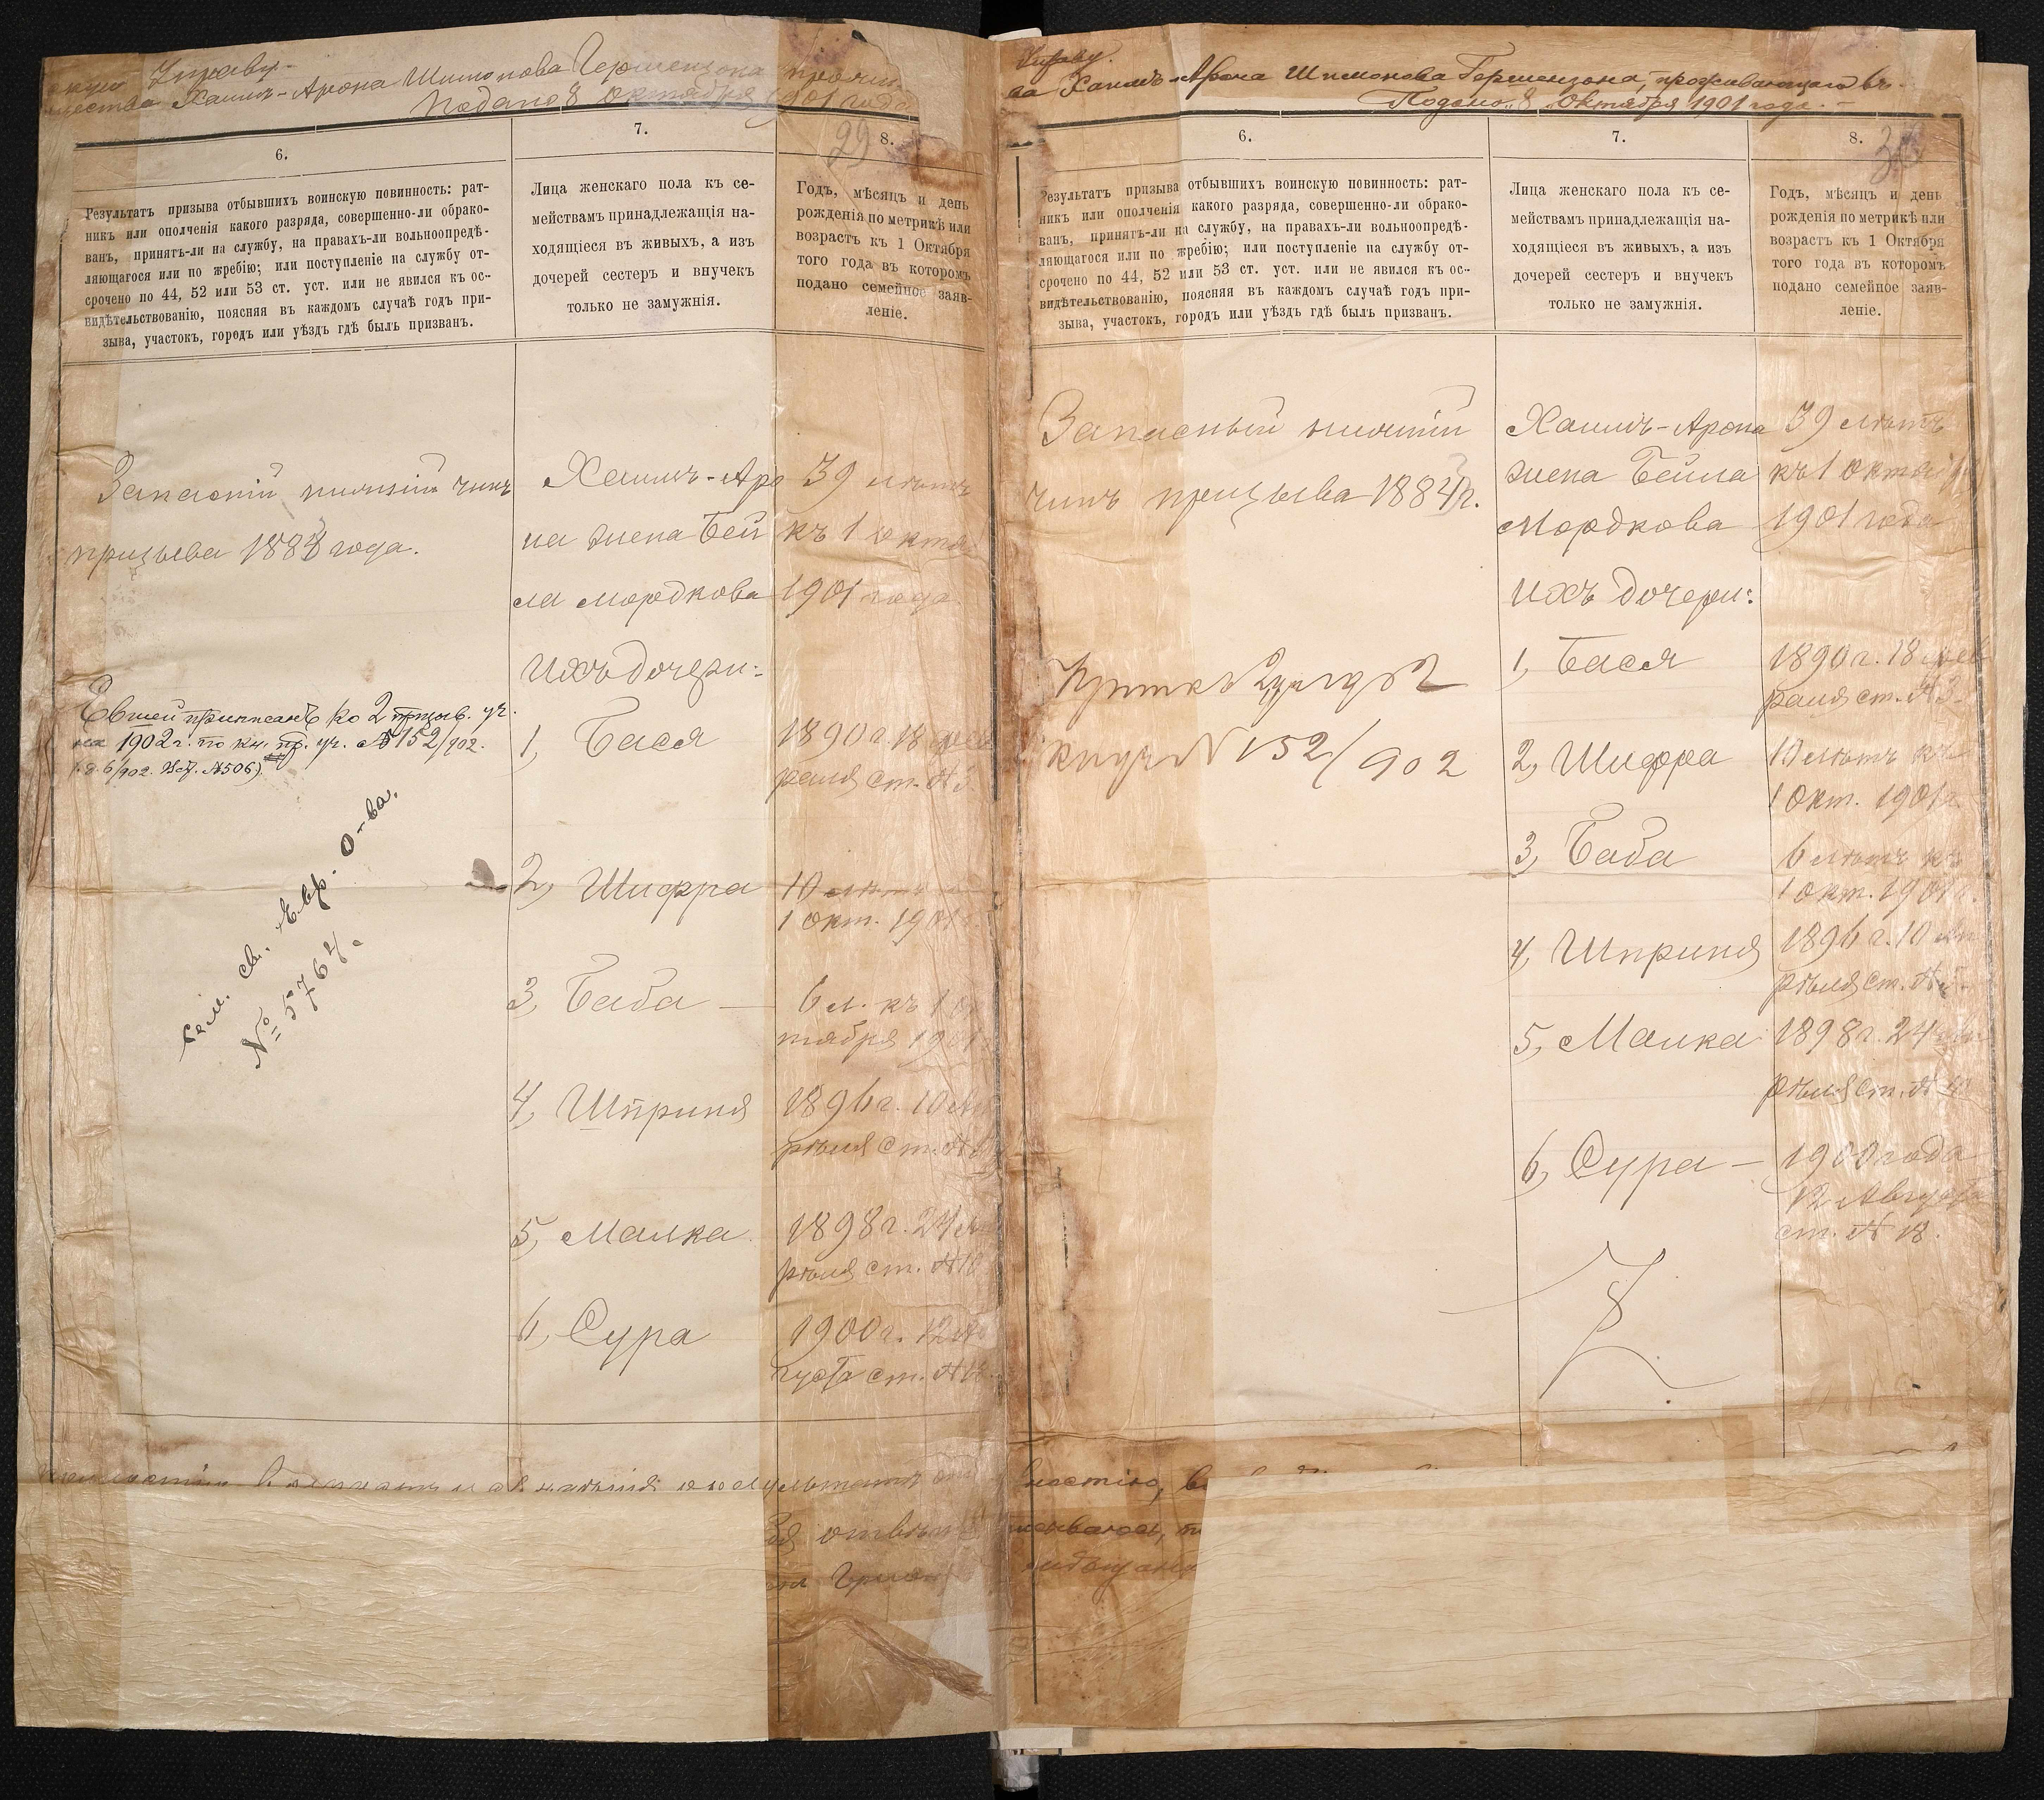 Управу.
Хаимъ-Арона Шимонова Гершензона
Подано 8 Октября 1901 года
29
6.
7.
8.
Результатъ призыва отбывшихъ воинскую повинность: рат-
никъ или ополченія какого разряда, совершенно-ли обрако-
ванъ, принятъ-ли на службу, на правахъ-ли вольноопредѣ-
ляющагося или по жребію; или поступленіе на службу от-
срочено по 44, 52 или 53 ст. уст. или не явился къ ос-
видѣтельствованію, поясняя въ каждомъ случаѣ годъ при-
зыва, участокъ, городъ или уѣздъ гдѣ былъ призванъ.
Лица женскаго пола къ се-
мействамъ принадлежащія на-
ходящіеся въ живыхъ, а изъ
дочерей сестеръ и внучекъ
только не замужнія.
Годъ, мѣсяцъ и день
рожденія по метрикѣ или
возрастъ къ 1 Октября
того года въ которомъ
подано семейное заяв-
леніе.
Запасній нижній чинъ
призыва 1883 года.
Евшей приписанъ ко 2 призыв. уч.
на 1902 г. по кн. пр. уч. № 152/902.
6/902. №506)
Сем. св. Евр. О-ва.
№ 5764.
Хаимъ-Аро
на жена Бей
ла Мордкова
Ихъ дочери:
1, Бася
2, Шифра
3, Баба —
4, Шприня
5, Малка
6, Сура
39 лѣтъ
къ 1 октя
1901 года
1890 г. 18 фев
раля ст. № 3
10 лѣтъ
1 окт. 1901
6 л. къ 1 ок
тября 1901
1896 г. 10 Ап
рѣля ст. №
1898 г. 24 Ап
рѣля ст. № 10
1900 г. 12 Ав
густа ст. № 18
Управу.
ва Хаимъ-Арона Шимонова Гершензона, проживающаго въ
Подано „8„ Октября 1901 года. —
6.
7.
8.
Результатъ призыва отбывшихъ воинскую повинность: рат-
никъ или ополченія какого разряда, совершенно-ли обрако-
ванъ, принятъ-ли на службу, на правахъ-ли вольноопредѣ-
ляющагося или по жребію; или поступленіе на службу от-
срочено по 44, 52 или 53 ст. уст. или не явился къ ос-
видѣтельствованію, поясняя въ каждомъ случаѣ годъ при-
зыва, участокъ, городъ или уѣздъ гдѣ былъ призванъ.
Лица женскаго пола къ се-
мействамъ принадлежащія на-
ходящіеся въ живыхъ, а изъ
дочерей сестеръ и внучекъ
только не замужнія.
Годъ, мѣсяцъ и день
рожденія по метрикѣ или
возрастъ къ 1 Октября
того года въ которомъ
подано семейное заяв-
леніе.
Запасный нижній
чинъ призыва 1883 г.
№ 152/902
Хаимъ-Арона
жена Бейла
Мордкова
ихъ дочери:
1, Бася
2, Шифра
3, Баба
4, Шприня
5, Малка
6, Сура —
39 лѣтъ
къ 1 октя
1901 года
1890 г. 18 фев
раля ст. № 3
10 лѣтъ къ
1 окт. 1901 г.
6 лѣтъ къ
1 окт. 1901 г.
1896 г. 10 Ап
рѣля ст. №
1898 г. 24 Ап
рѣля ст. №
1900 года
12 Августа
ст. № 18.